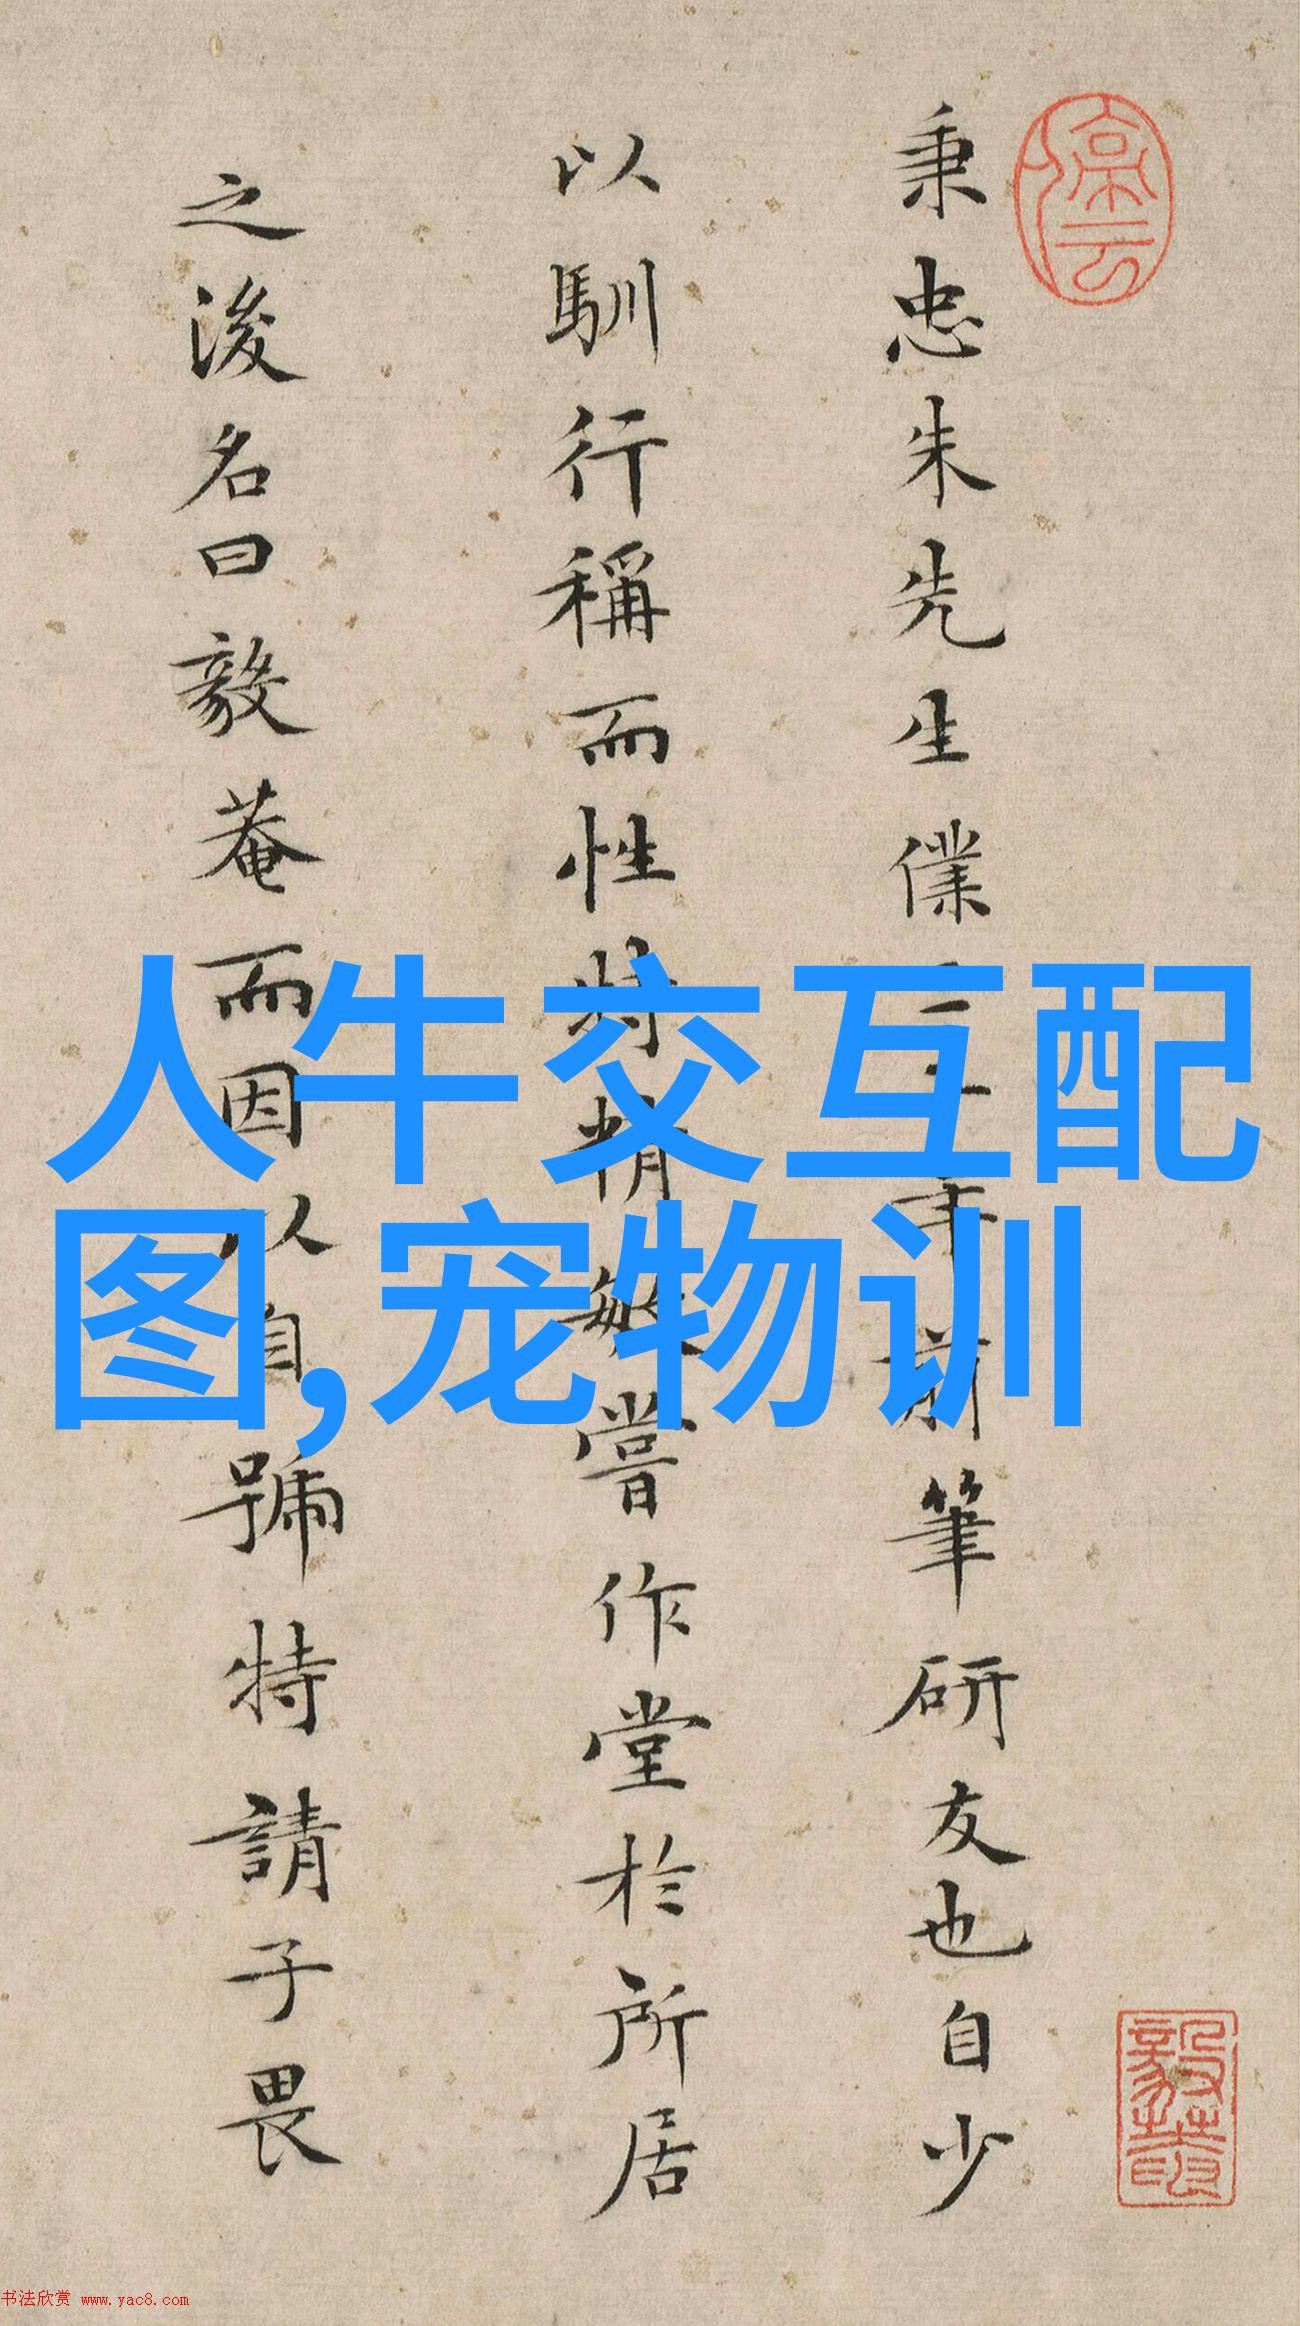 秉忠朱先生僕
年前筆研友也自少
以馴行稱而性特精敏嘗作堂於所居
之後名曰毅菴而因以自號特請子畏
人牛交互配
图,宠物训
书法欣赏 www.yac8.com